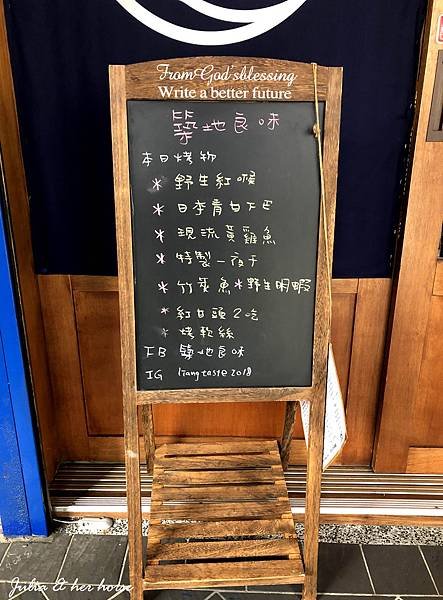 From God's blessing
Write a better future
築地良味
本日烤物
* 野生紅喉
* 日本青甘下巴
* 現流黃雞魚
* 特製一夜干
* 竹筴魚 * 野生明蝦
* 紅甘頭2吃
* 烤軟絲
FB 築地良味
IG liang taste 2018
Julia & her horse